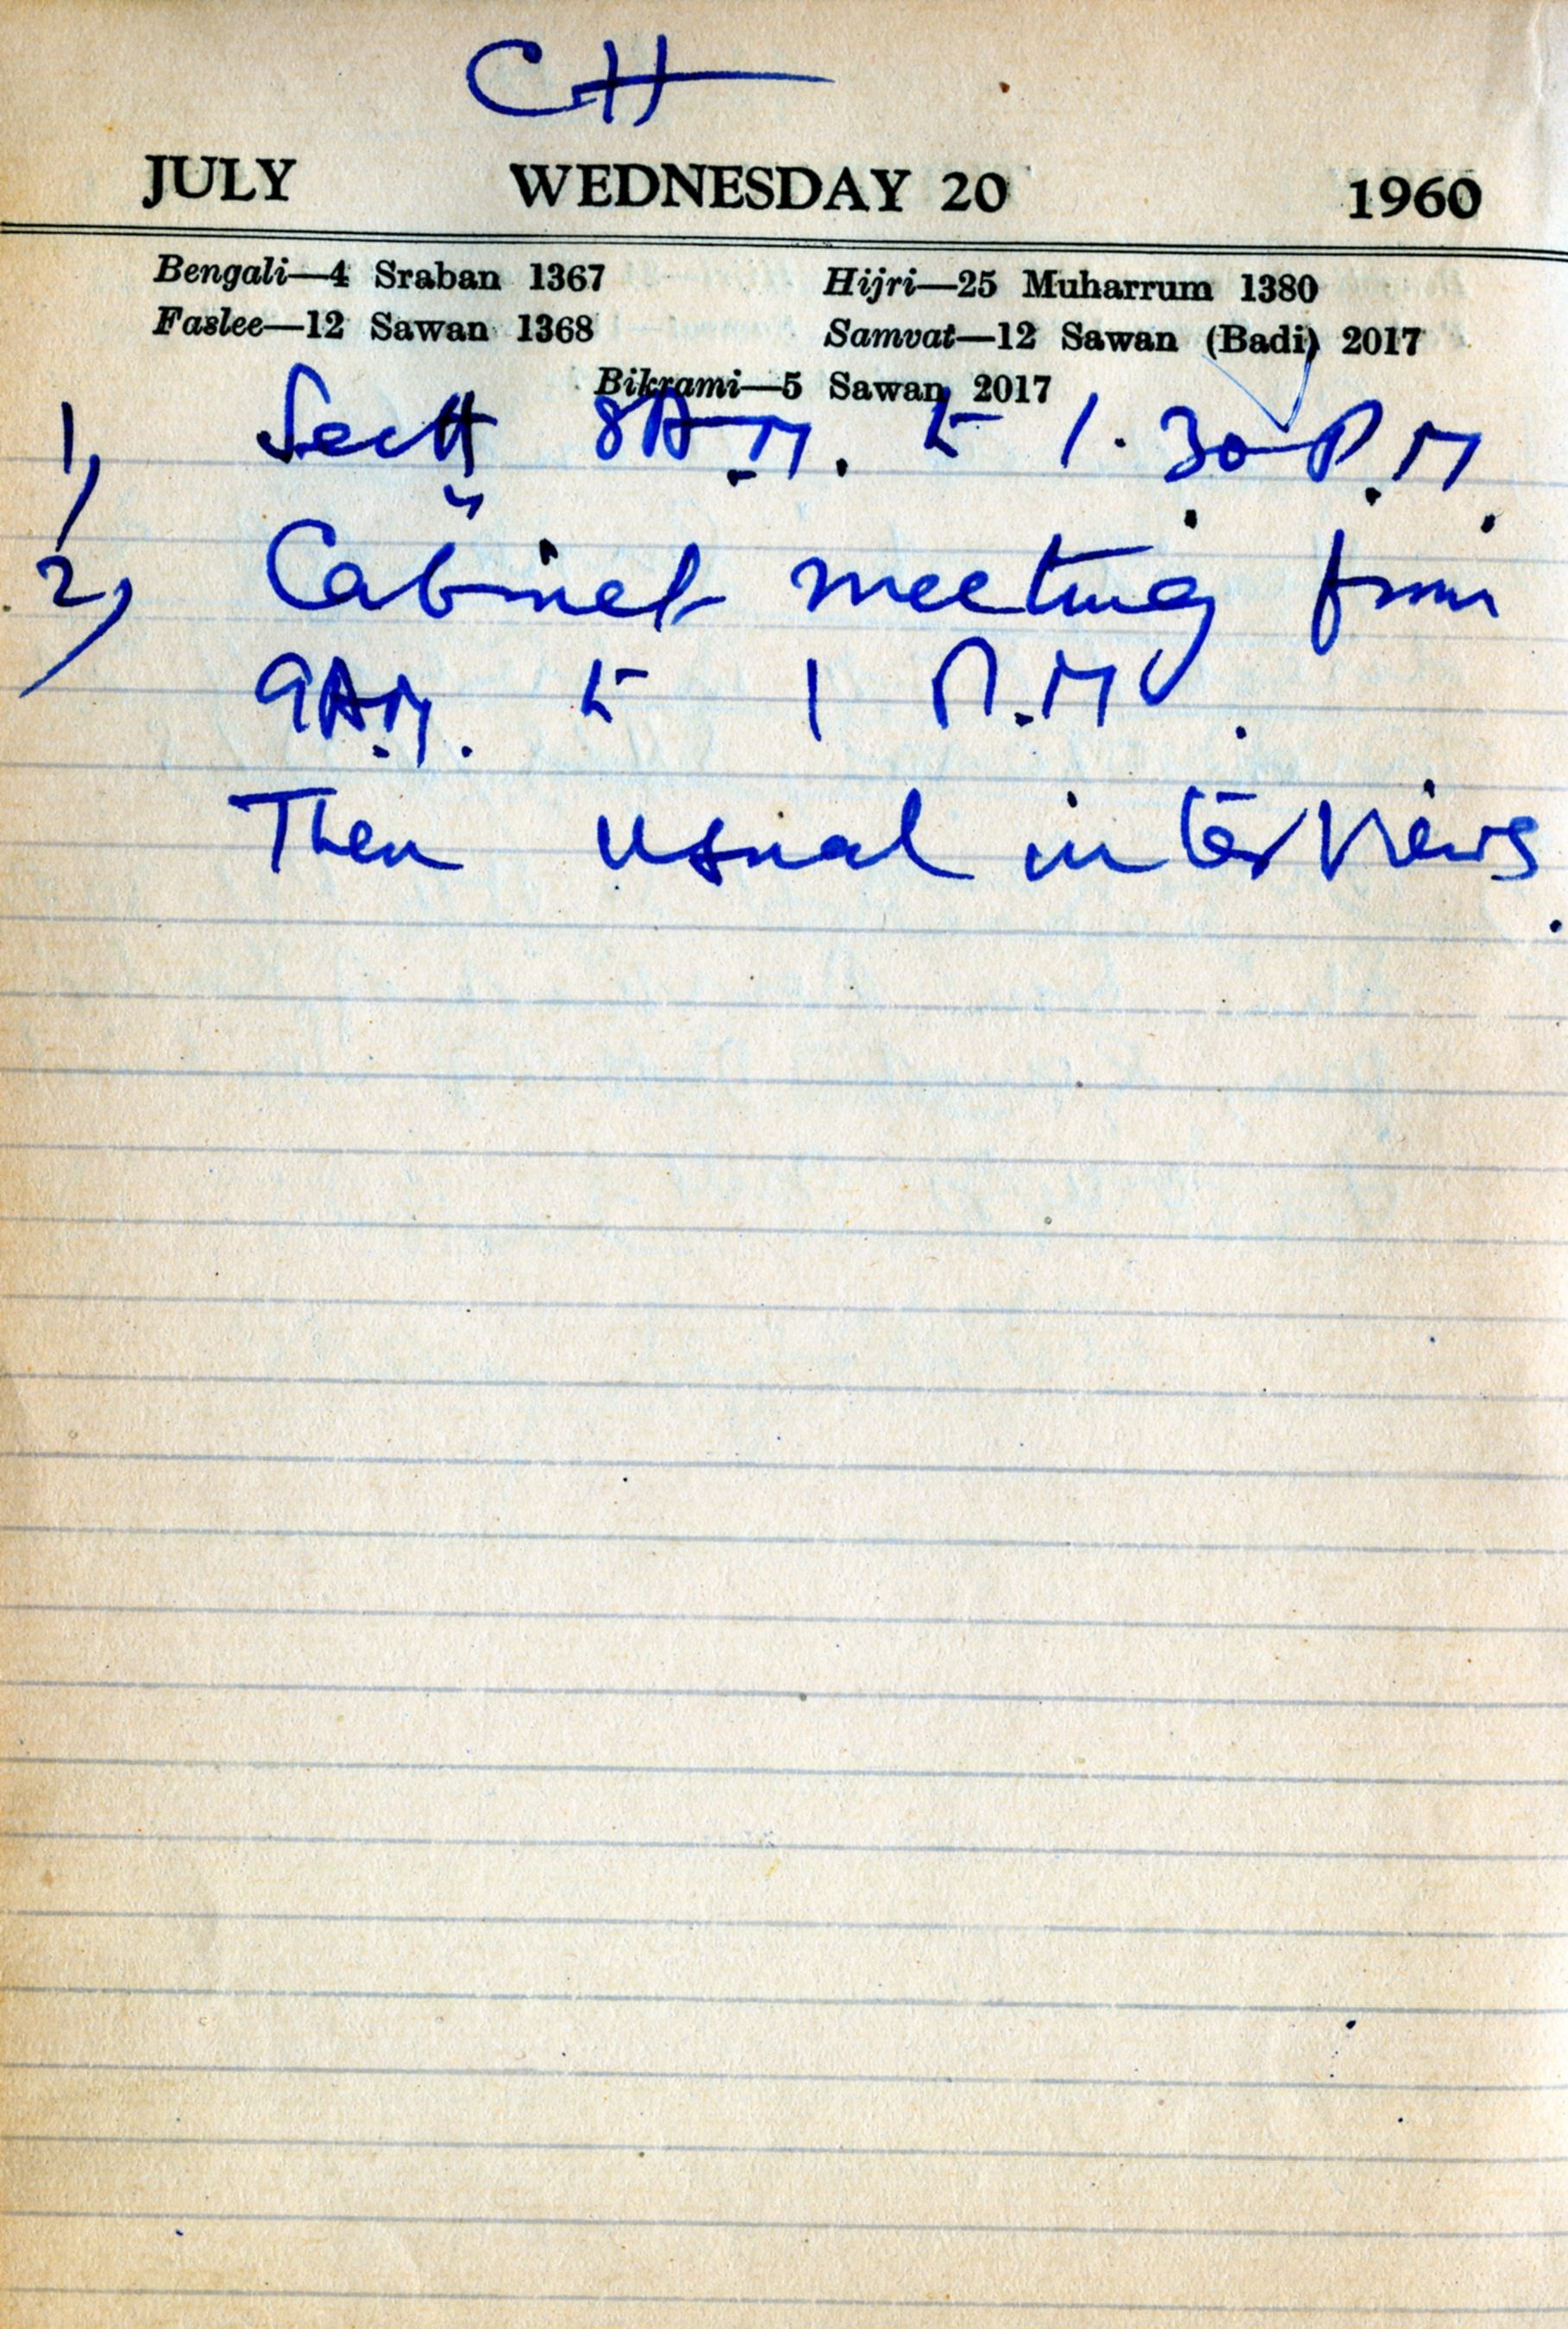 CH
JULY WEDNESDAY 20 1960
Bengali—4 Sraban 1367 Hijri—25 Muharrum 1380
Faslee—12 Sawan 1368 Samvat—12 Sawan (Badi) 2017
Bikrami—5 Sawan 2017
1) Sectt 8 A.M. to 1.30 P.M.
2) Cabinet meeting from
9 A.M. to 1 P.M.
Then usual interviews.